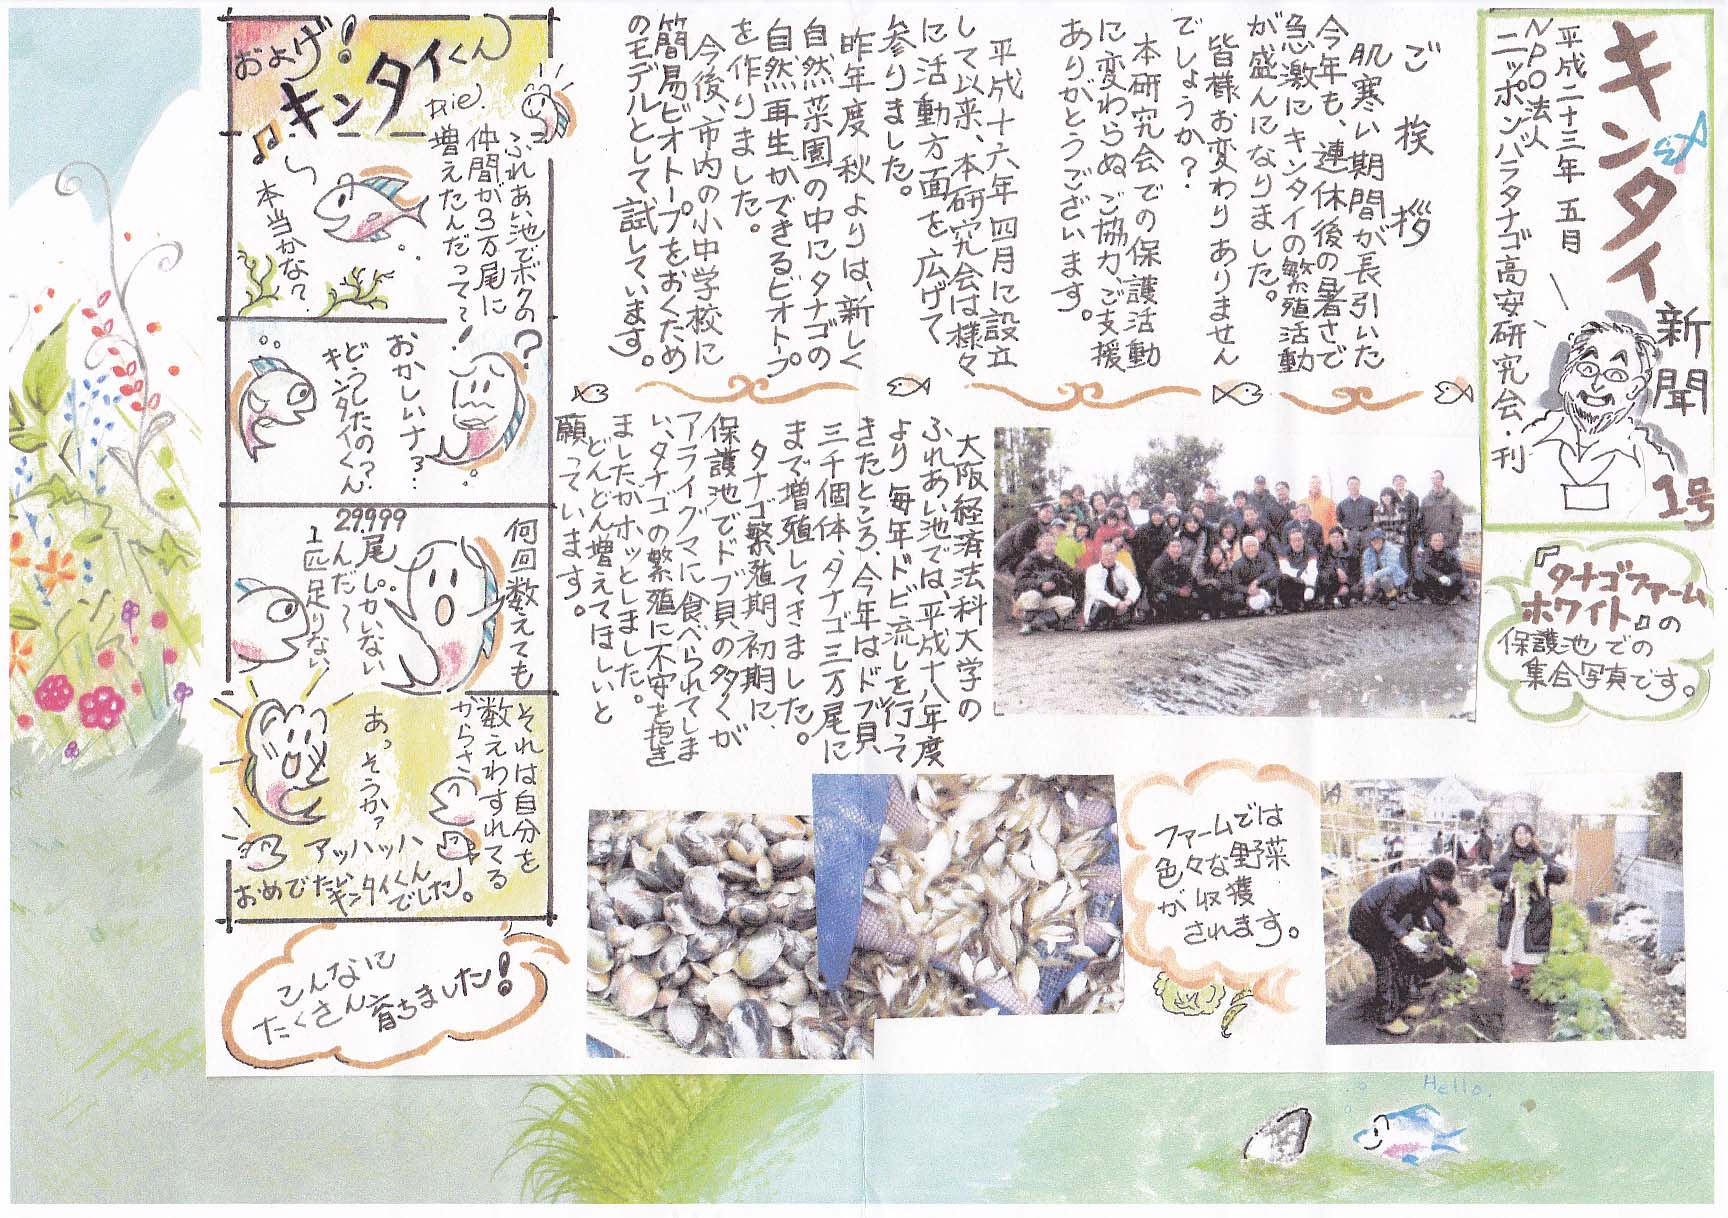 キンタイ
新聞
1号
平成二十三年 五月
NPO法人
ニッポンバラタナゴ高安研究会・刊
ご挨拶
肌寒い期間が長引いた
今年も、連休後の暑さで
急激にキンタイの繁殖活動
が盛んになりました。
皆様お変わりありません
でしょうか?
本研究会での保護活動
に変わらぬご協力ご支援
ありがとうございます。
平成十六年四月に設立
して以来、本研究会は様々
に活動方面を広げて
参りました。
昨年度秋よりは、新しく
自然菜園の中にタナゴの
自然再生ができるビオトプ
を作りました。
今後、市内の小中学校に
簡易ビオトープをおくため
のモデルとして試しています。
『タナゴファーム
ホワイト』の
保護池での
集合写真です。
大阪経済法科大学の
ふれあい池では、平成十八年度
より毎年ドビ流しを行って
きたところ、今年はドブ貝
三千個体、タナゴ三万尾に
まで増殖してきました。
タナゴ繁殖期初期に、
保護池でドブ貝の多くが
アライグマに食べられてしま
い、タナゴの繁殖に不安を抱き
ましたがホッとしました。
どんどん増えてほしいと
願っています。
ファームでは
色々な野菜
が収獲
されます。
およげ!
キンタイくん
ふれあい池でボクの
仲間が3万尾に
増えたんだって?
本当かな?
おかしいナ?…
どうしたの?
キンタイくん
何回数えても
29,999
尾しかいない
んだ〜
1匹足りない
それは自分を
数えわすれてる
からさ
あっそうか?
アッハッハ
おめでたい
キンタイくん
でした。
こんなに
たくさん育ちました!
Hello.